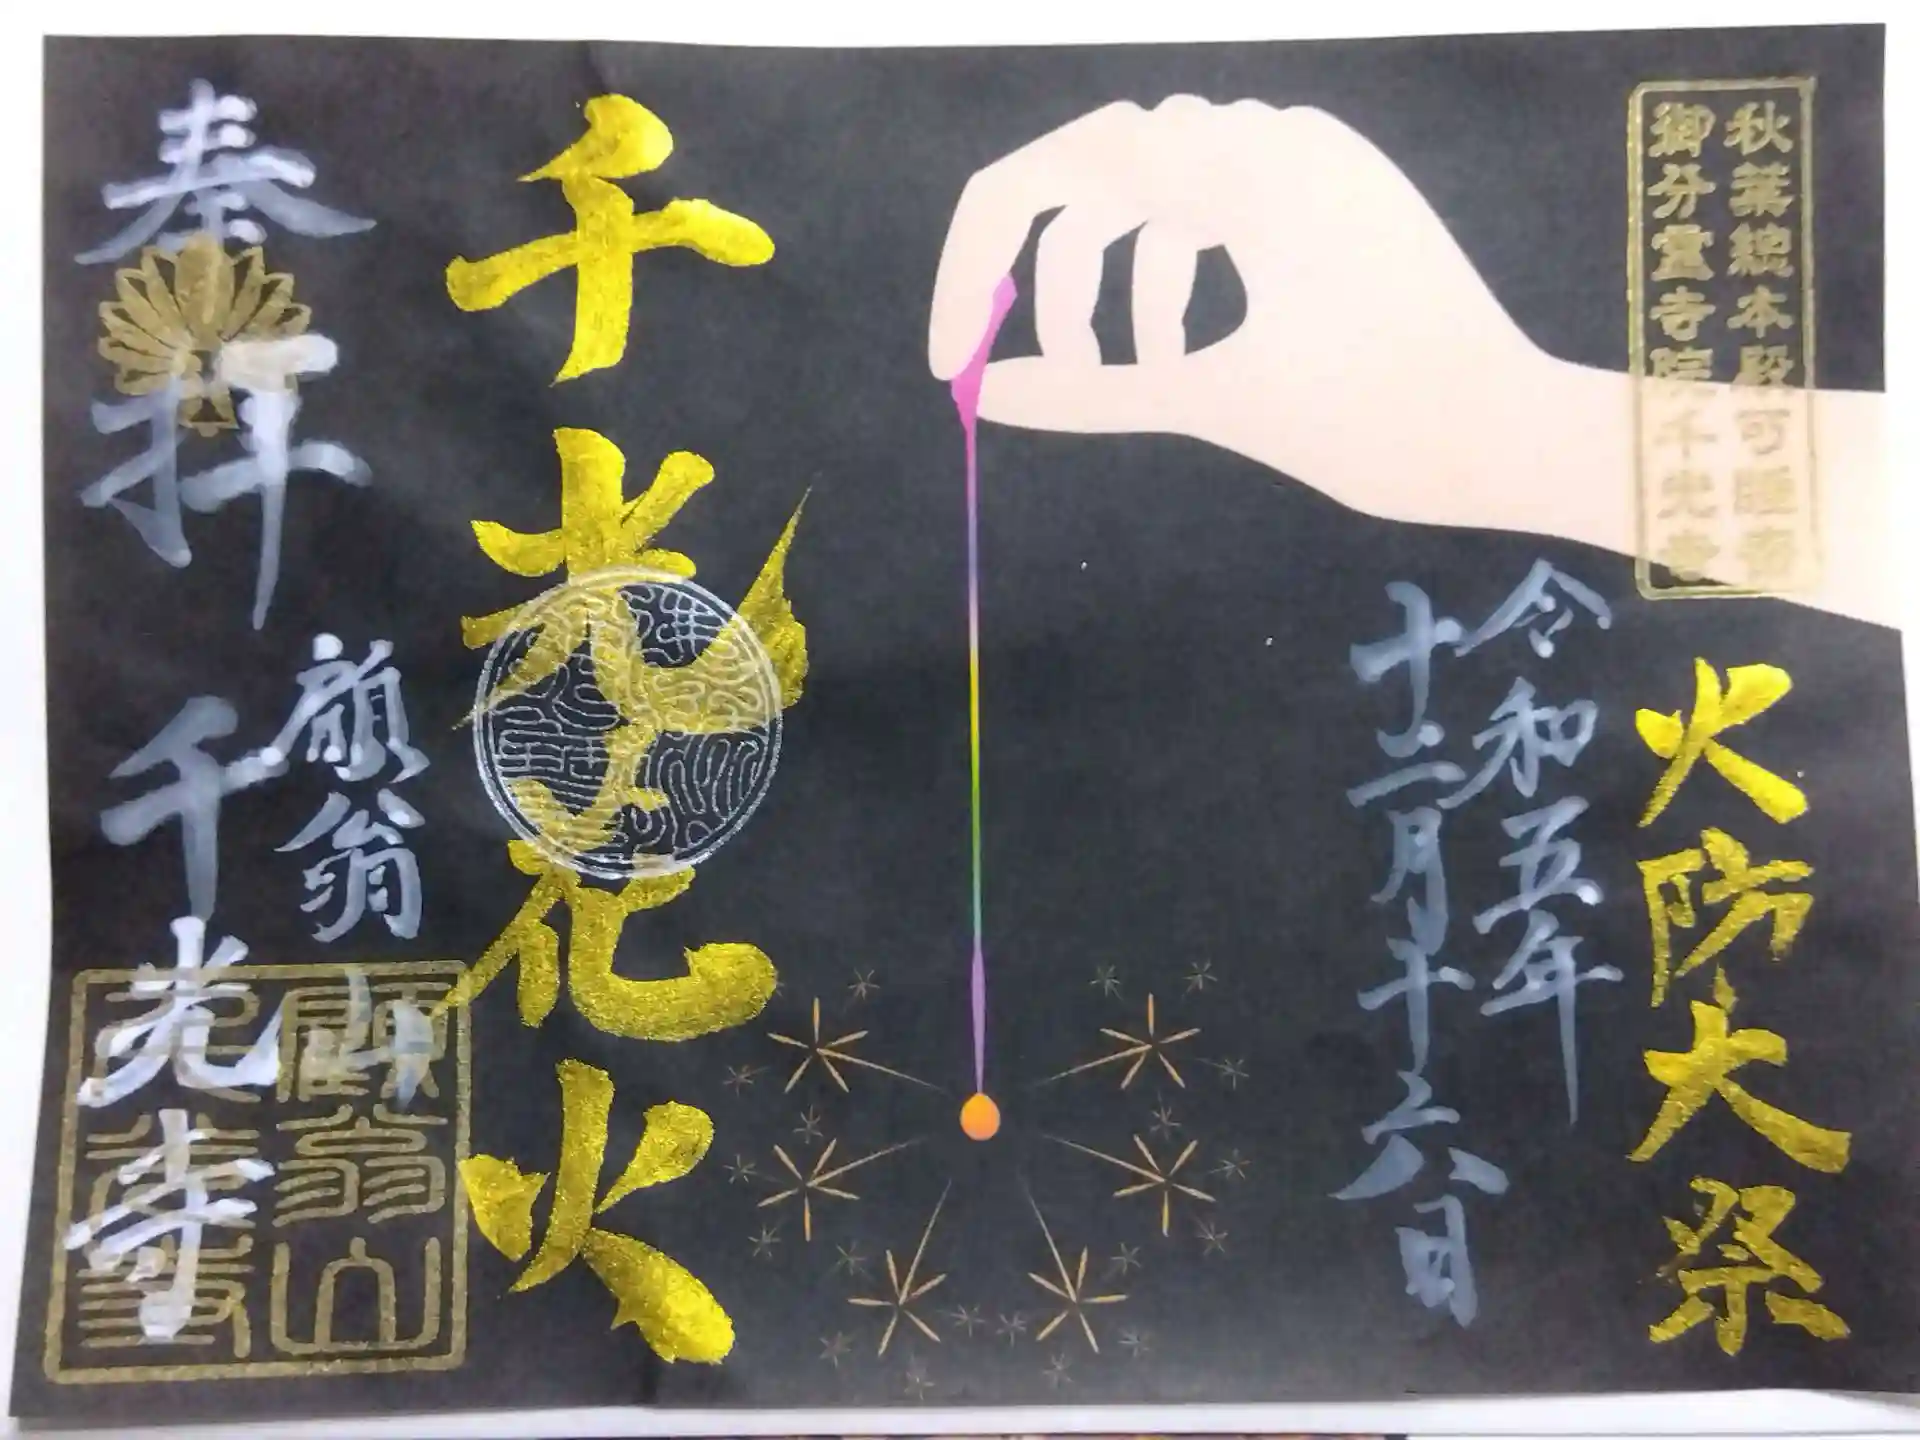 秋葉總本殿可睡斎
御分霊寺院千光寺
火防大祭
令和五年
十二月十六日
千光花火
奉拝
願翁山
千光寺
願翁山